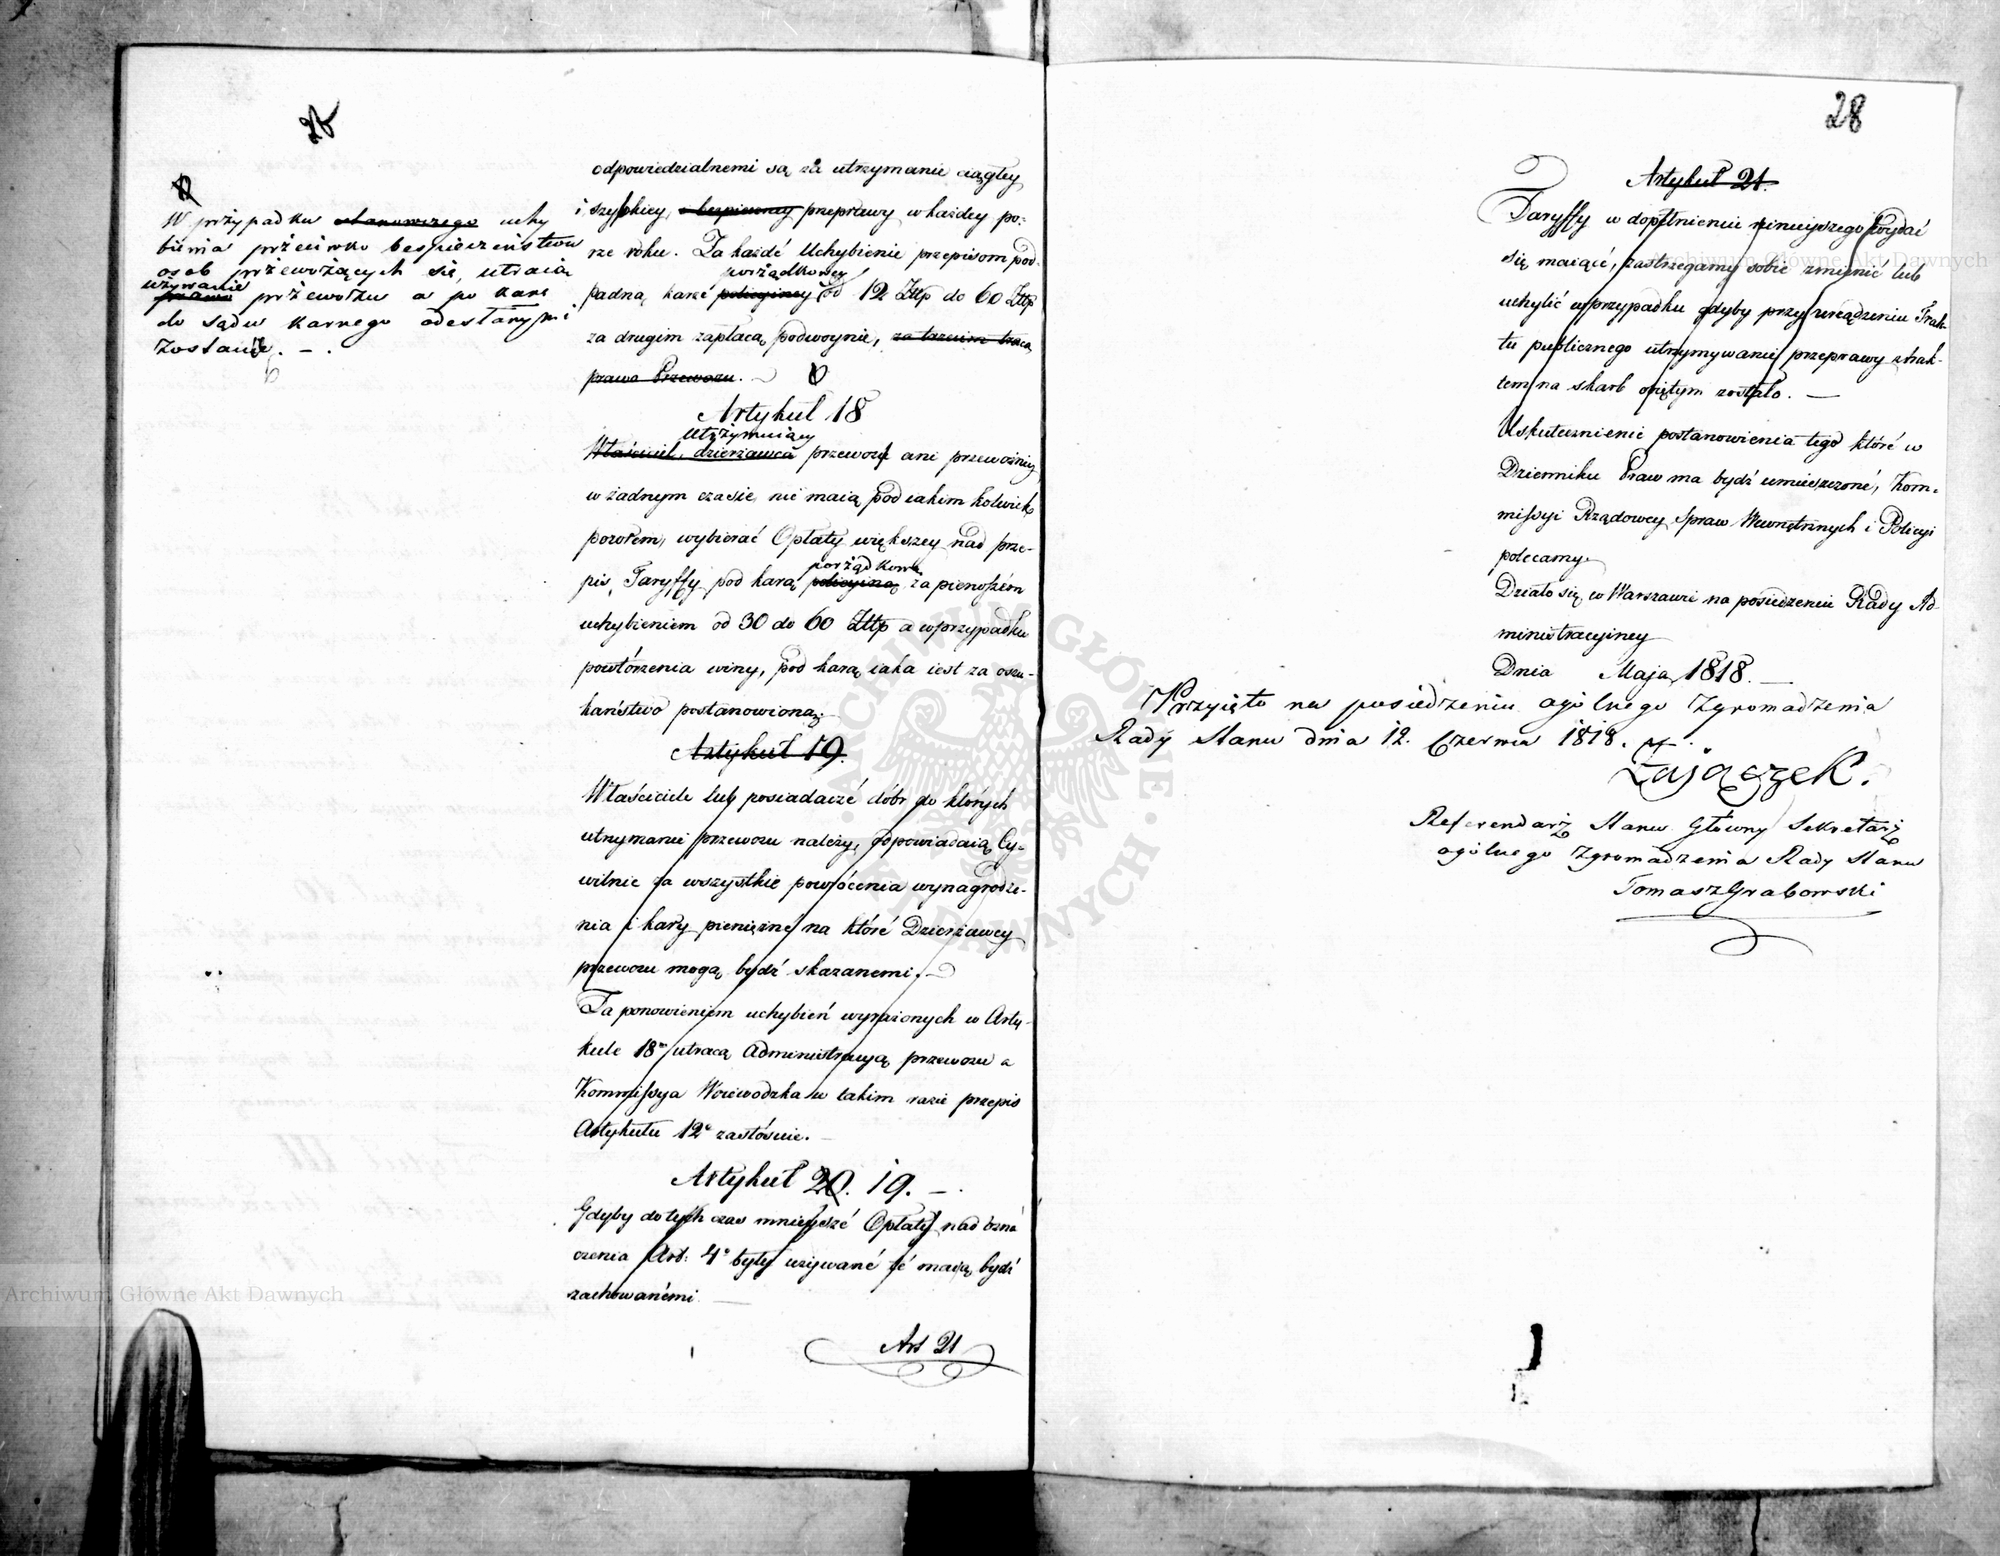 28
W przypadku stanowczego uchy
bienia przeciwko bezpieczeństwu
osob przewożących się, utraią
używanie
prawa przewozu a po karę
do sądu karnego odesłanymi
zostaną. – .
odpowiedzialnemi są za utrzymanie ciągłey
i szybkiey, i bezpieczney przeprawy w każdey po-
rze roku. Za każdé Uchybienie przepisom pod-
porządkowey
padną karze policyiney od 12 Złłp do 60 Złłp
za drugim zapłacą podwoynie, za trzecim tracą
prawo Przewozu. –
Artykuł 18
Utrzymuiący
Właściciel, dzierżawca przewozu ani przewoźnicy
w żadnym czasie nié maią pod iakim kolwiek
pozorem, wybierać Opłaty większey nad prze-
porządkową
pis Taryffy pod karą policyiną za pierwszém
uchybieniem od 30 do 60 Złłp a w przypadku
powtórzenia winy, pod karą iaka iest za oszu-
kaństwo postanowioną.
Artykuł 19.
Właściciele lub posiadaczé dóbr do których
utrzymanie przewozu należy, odpowiadaią Cy-
wilnie za wszystkie powrócenia wynagrodze-
nia i kary pieniężne na któré Dzierżawcy
przewozu mogą bydź skazanemi. –
Za ponowieniem uchybień wyrażonych w Arty-
kule 18m utracą Administracyą przewozu a
Kommissya Woiewodzka w takim razie przepis
Artykułu 12o zastósuie. –
Artykuł 20. 19. – .
Gdyby dotych czas mnieyszé Opłaty nad ozna
czenia Art: 4o były używané té maią bydź
zachowanémi –
Art 21
28
Artykuł 21.
Taryffy w dopełnienie ninieyszego wydać
się maiącé, zastrzegamy sobie zmienić lub
uchylić w przypadku gdyby przy urządzeniu Trak-
tu publicznego utrzymywanie przeprawy z trak-
tem na skarb obiętym zostało. –
Uskutecznienié postanowienia tego któré w
Dzienniku Praw ma bydź umieszczoné, Kom-
missyi Rządowey Spraw Wewnętrznych i Policyi
polecamy.
Działo się w Warszawie na posiedzeniu Rady Ad-
ministracyiney
Dnia Maja 1818. –
Przyięto na posiedzeniu ogólnego Zgromadzenia
Rady Stanu dnia 12. Czerwca 1818.
Zajączek.
Referendarz Stanu Główny Sekretarz
ogólnego Zgromadzenia Rady Stanu
Tomasz Grabowski
ARCHIWUM GŁÓWNE AKT DAWNYCH
Archiwum Główne Akt Dawnych
Archiwum Główne Akt Dawnych